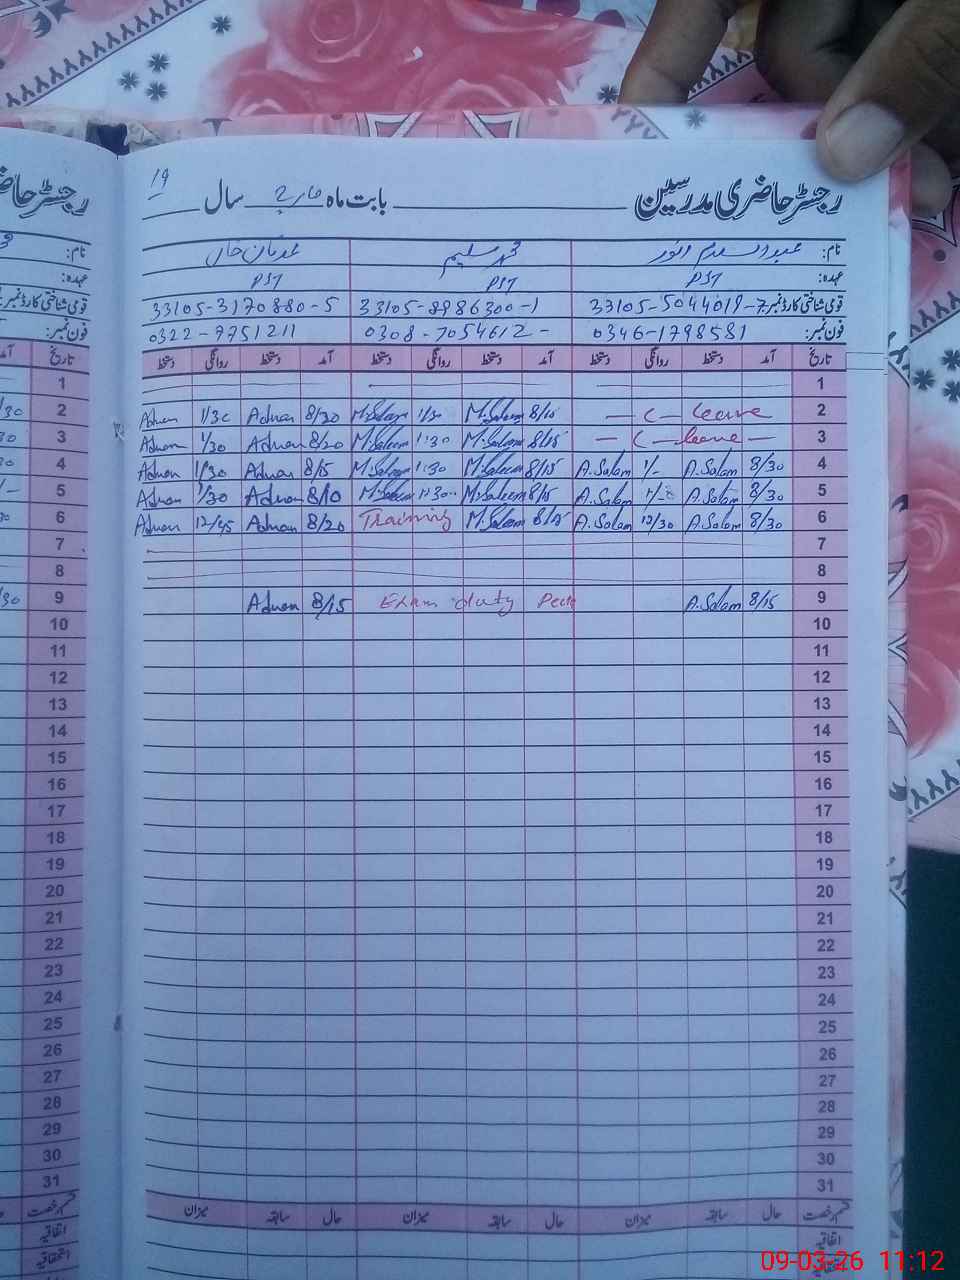 19
رجسٹر حاضری مدرسین بابت ماہ مارچ سال
نام: عبدالسلام انور محمد سلیم عدنان خاں
عہدہ: PST PST PST
قومی شناختی کارڈ نمبر: 33105-5044019-7 33105-8986300-1 33105-3170880-5
فون نمبر: 0346-1798581 0308-7054612- 0322-7751211
تاریخ آمد دستخط روانگی دستخط آمد دستخط روانگی دستخط آمد دستخط روانگی دستخط تاریخ
1
Adnan 1/30 Adnan 8/20 M.Saleem 1/30 M.Saleem 8/15 — C — leave 2
Adnan 1/30 Adnan 8/20 M.Saleem 1:30 M.Saleem 8/15 — C — leave — 3
Adnan 1/30 Adnan 8/15 M.Saleem 1:30 M.Saleem 8/15 A.Salam 1/- A.Salam 8/30 4
Adnan 1/30 Adnan 8/10 M.Saleem 1:30 M.Saleem 8/15 A.Salam A.Salam 8/30 5
Adnan 12/45 Adnan 8/20 Training M.Saleem 8/15 A.Salam 12/30 A.Salam 8/30 6
7
8
Adnan 8/15 Exam duty A.Salam 8/15 9
10
11
12
13
14
15
16
17
18
19
20
21
22
23
24
25
26
27
28
29
30
31
قسم رخصت حال سابقہ میزان حال سابقہ میزان حال سابقہ میزان
اتفاقیہ
استحقاقیہ
09-03-26 11:12